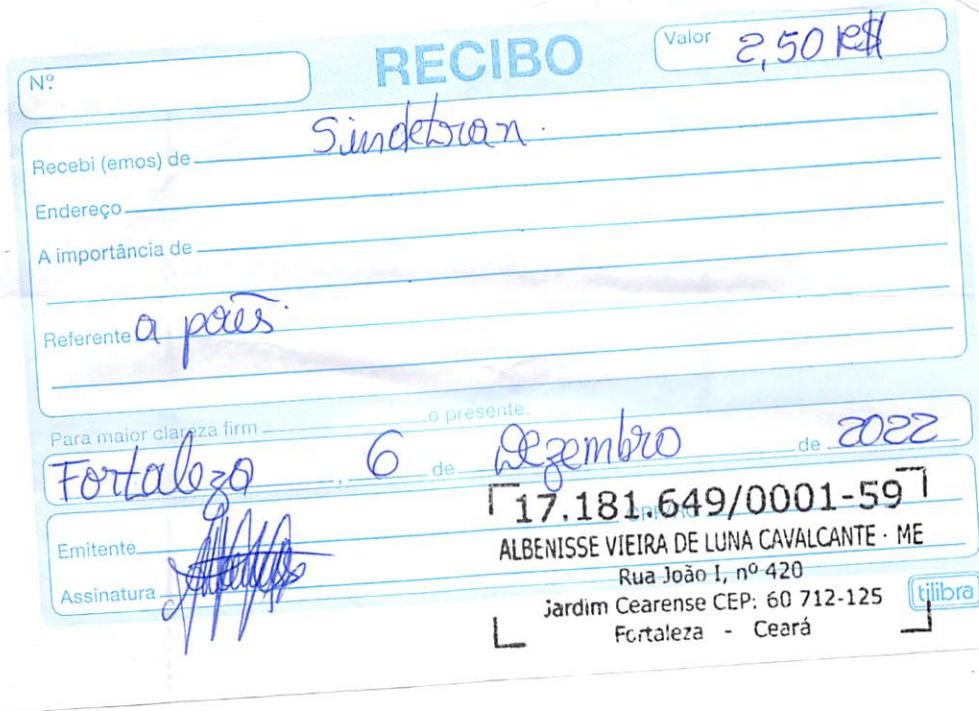 Nº
RECIBO
Valor 2,50 R$
Recebi (emos) de Sindetran.
Endereço
A importância de
Referente a pães.
Para maior clareza firm o presente.
Fortaleza, 6 de Dezembro de 2022
17.181.649/0001-59
Emitente
ALBENISSE VIEIRA DE LUNA CAVALCANTE - ME
Assinatura
Rua João I, nº 420
Jardim Cearense CEP: 60 712-125
tilibra
Fortaleza - Ceará